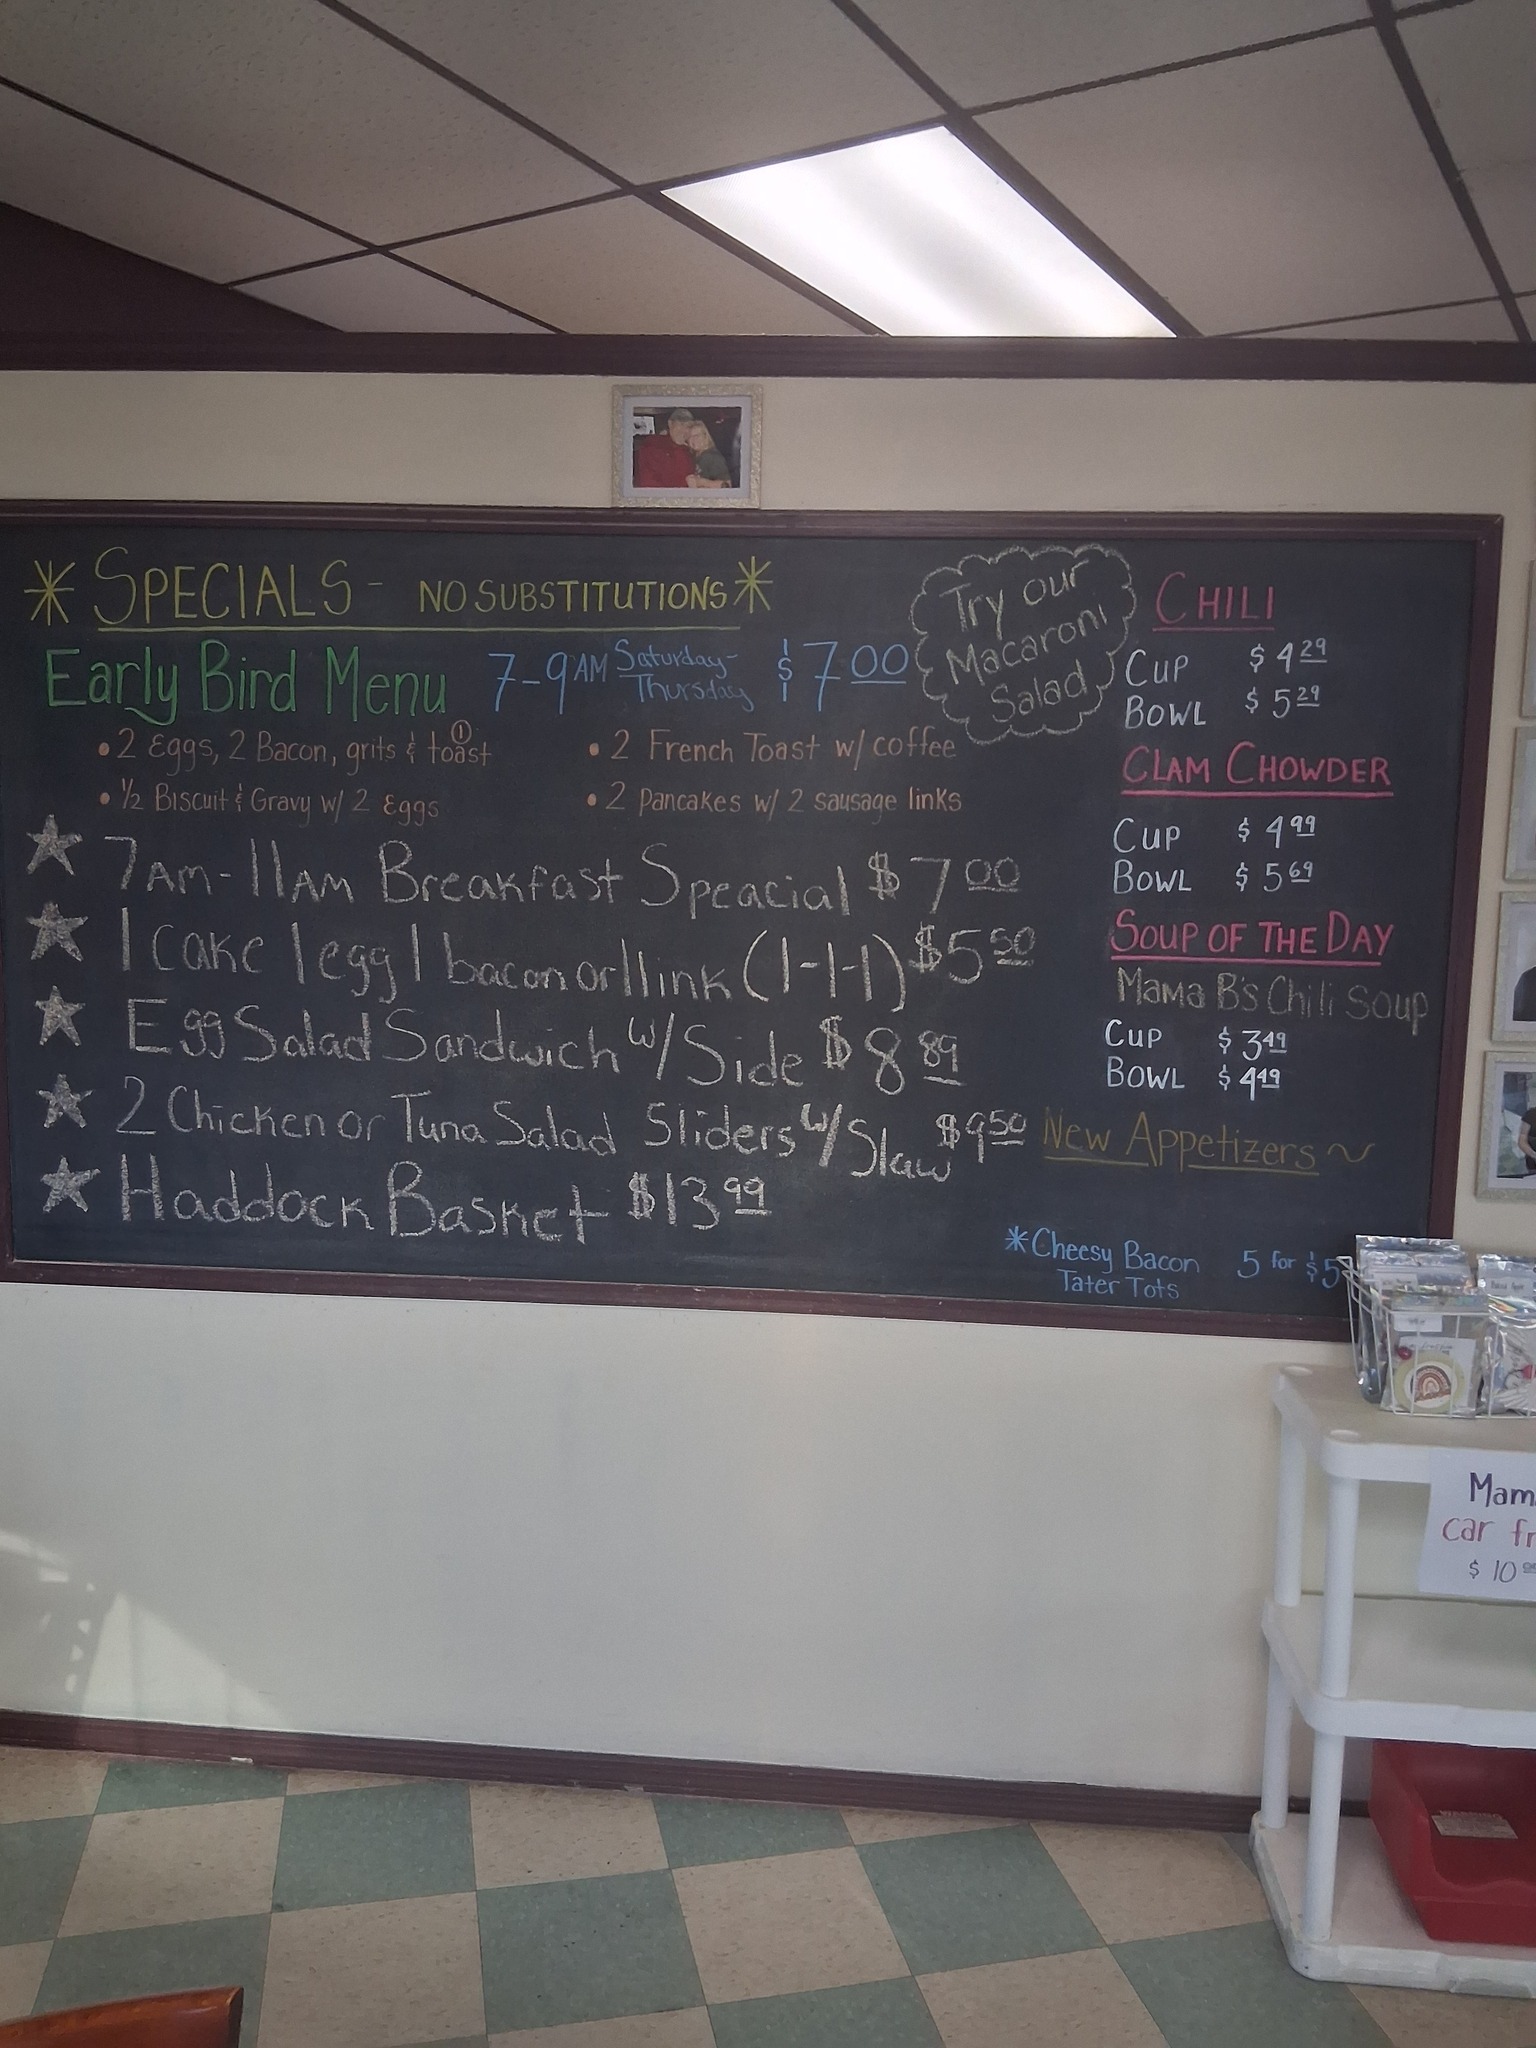 * SPECIALS - NO SUBSTITUTIONS *
Early Bird Menu 7-9 AM Saturday- Thursday $7.00
• 2 Eggs, 2 Bacon, grits & toast ①
• 2 French Toast w/ coffee
• 1/2 Biscuit & Gravy w/ 2 Eggs
• 2 pancakes w/ 2 sausage links
7AM-11AM Breakfast Speacial $7.00
1 cake 1 egg 1 bacon or 1 link (1-1-1) $5.50
Egg Salad Sandwich w/ Side $8.89
2 Chicken or Tuna Salad Sliders w/ Slaw $9.50
Haddock Basket $13.99
Try our
Macaroni
Salad
CHILI
CUP $4.29
BOWL $5.29
CLAM CHOWDER
CUP $4.99
BOWL $5.69
SOUP OF THE DAY
Mama B's Chili Soup
CUP $3.49
BOWL $4.49
New Appetizers ~
* Cheesy Bacon 5 for $5
Tater Tots
Mam
car fr
$10
WARNING